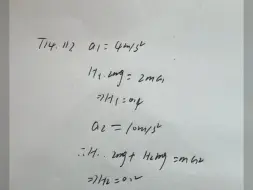 T14. 112 a₁ = 4m/s²
H₁ · 2mg = 2ma₁
⇒ H₁ = 0.4
a₂ = 10m/s²
∴ H₁ · 2mg + H₂mg = ma₂
⇒ H₂ = 0.2